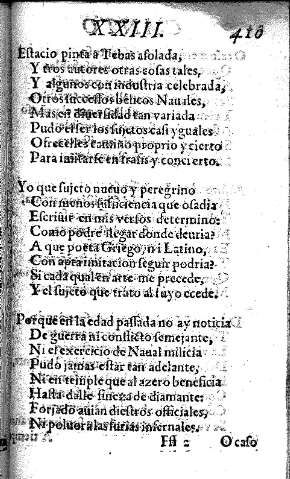 XXIII. 410
Estacio pinta à Tebas asolada,
Y otros autores otras cosas tales,
Y algunos con industria celebrada,
Otros successos bélicos Nauales,
Mas en diuersidad tan variada
Pudo ser los sujetos casi yguales
Ofrecelles camino proprio y cierto
Para imitarse en frasis y concierto.
Yo que sujeto nueuo y peregrino
Con menos suficiencia que osadia
Escriuir en mis versos determino:
Como podre llegar donde deuria?
A que poeta Griego, ni Latino,
Con apta imitacion seguir podria?
Si cada qual en arte me precede,
Y el sujeto que trato al suyo ecede.
Porque en la edad passada no ay noticia
De guerra ni conflicto semejante,
Ni el exercicio de Naual milicia
Pudo jamas estar tan adelante,
Ni en temple que al azero beneficia
Hasta dalle fineza de diamante:
Forjado auian diestros officiales,
Ni poluora las furias infernales.
Fff 2 Ocaso